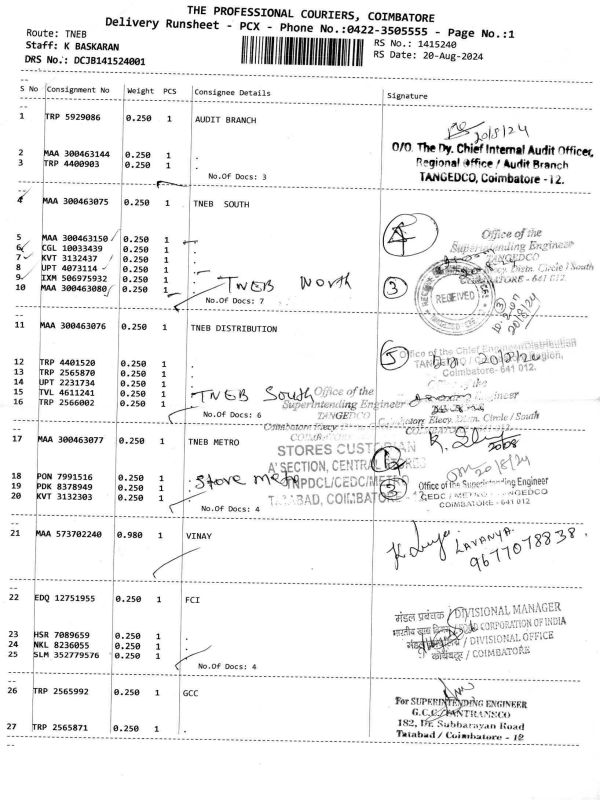 THE PROFESSIONAL COURIERS, COIMBATORE
Delivery Runsheet - PCX - Phone No.:0422-3505555 - Page No.:1
Route: TNEB
Staff: K BASKARAN
DRS No.: DCJB141524001
RS No.: 1415240
RS Date: 20-Aug-2024
S No Consignment No Weight PCS Consignee Details Signature
1 TRP 5929086 0.250 1 AUDIT BRANCH
20/8/24
2 MAA 300463144 0.250 1 .
3 TRP 4400903 0.250 1 .
No.Of Docs: 3
O/O. The Dy. Chief Internal Audit Officer,
Regional Office / Audit Branch
TANGEDCO, Coimbatore - 12.
4 MAA 300463075 0.250 1 TNEB SOUTH
5 MAA 300463150 0.250 1 .
6 CGL 10033439 0.250 1 .
7 KVT 3132437 0.250 1 .
8 UPT 4073114 0.250 1 .
9 IXM 506975932 0.250 1 .
10 MAA 300463080 0.250 1 .
TNEB North
No.Of Docs: 7
Office of the
Superintending Engineer
TANGEDCO
Elecy. Distn. Circle / South
COIMBATORE - 641 012.
3
RECEIVED
20/8/24
11 MAA 300463076 0.250 1 TNEB DISTRIBUTION
12 TRP 4401520 0.250 1 .
13 TRP 2565870 0.250 1 .
14 UPT 2231734 0.250 1 .
15 TVL 4611241 0.250 1 .
16 TRP 2566002 0.250 1 .
TNEB South
No.Of Docs: 6
5
20/8/24
Office of the Chief Engineer/Distribution
Coimbatore - 641 012.
Office of the
Superintending Engineer
TANGEDCO
Coimbatore Elecy. Distn. Circle / South
17 MAA 300463077 0.250 1 TNEB METRO
18 PON 7991516 0.250 1 .
19 PDK 8378949 0.250 1 .
20 KVT 3132303 0.250 1 .
Store metro
No.Of Docs: 4
STORES CUSTODIAN
'A' SECTION, CENTRAL STORES
TNPDCL/CEDC/METRO
TATABAD, COIMBATORE - 12
20/08
20/8/24
3
Office of the Superintending Engineer
CEDC / METRO / TANGEDCO
COIMBATORE - 641 012
21 MAA 573702240 0.980 1 VINAY
LAVANYA.
9677078838.
22 EDQ 12751955 0.250 1 FCI
23 HSR 7089659 0.250 1 .
24 NKL 8236055 0.250 1 .
25 SLM 352779576 0.250 1 .
No.Of Docs: 4
मंडल प्रबंधक / DIVISIONAL MANAGER
भारतीय खाद्य निगम / FOOD CORPORATION OF INDIA
/ DIVISIONAL OFFICE
कोयंबटूर / COIMBATORE
26 TRP 2565992 0.250 1 GCC
27 TRP 2565871 0.250 1 .
For SUPERINTENDING ENGINEER
G.C.C./TANTRANSCO
182, Dr. Subbarayan Road
Tatabad / Coimbatore - 12